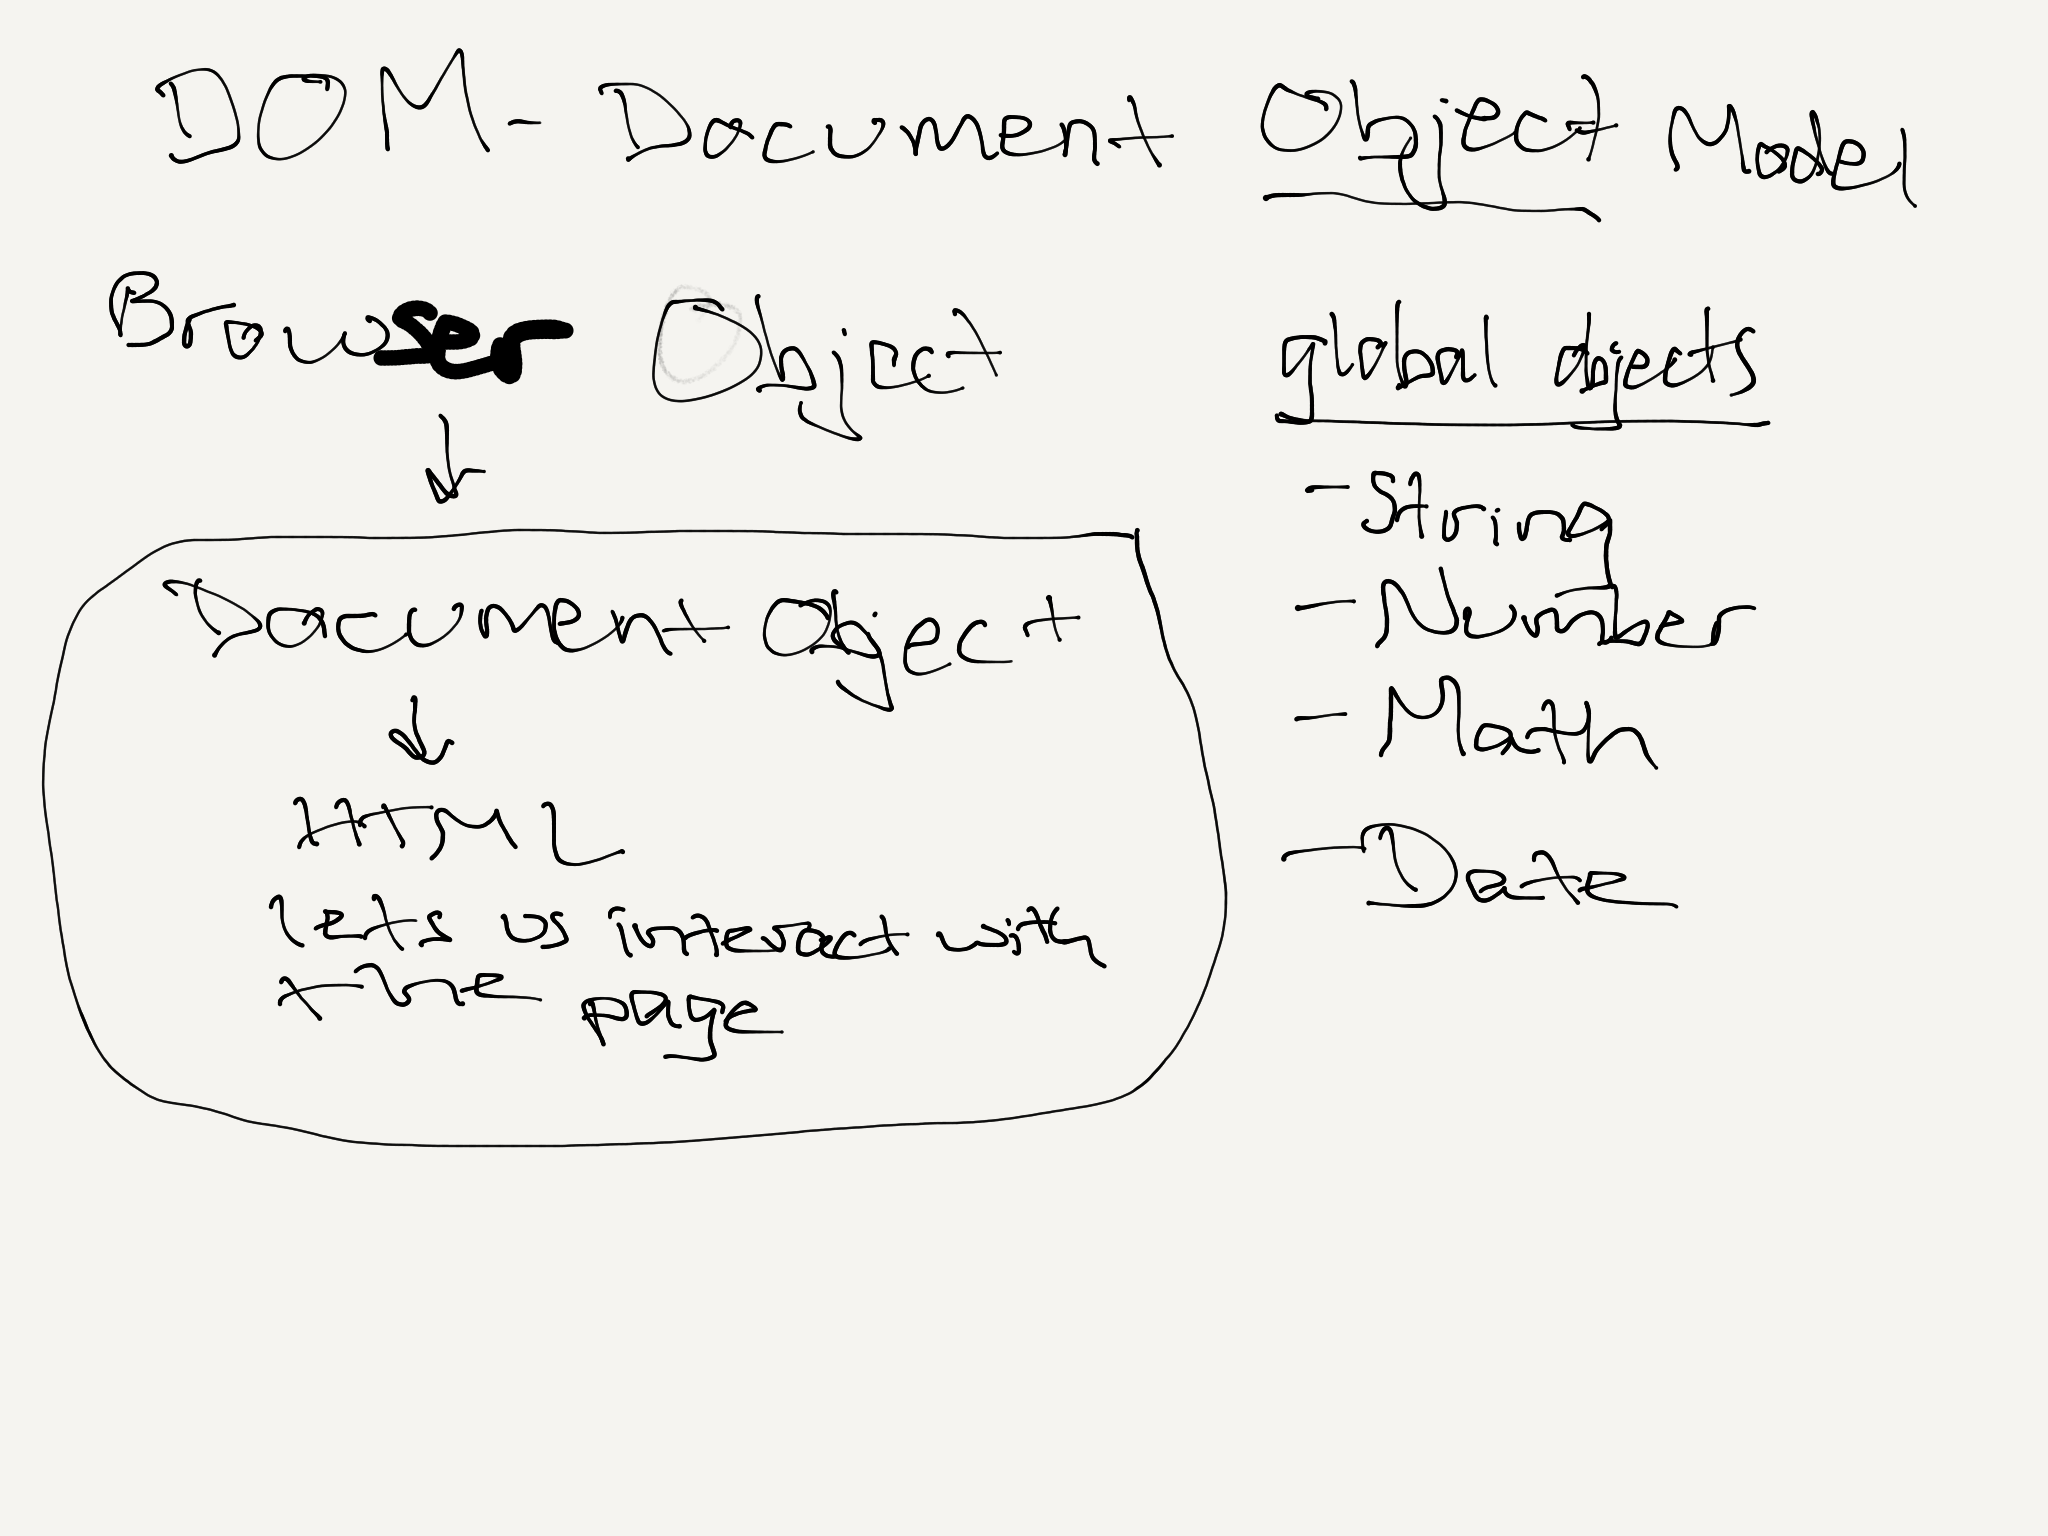 DOM - Document Object Model
Browser Object
Document Object
HTML
lets us interact with
the page
global objects
- String
- Number
- Math
- Date